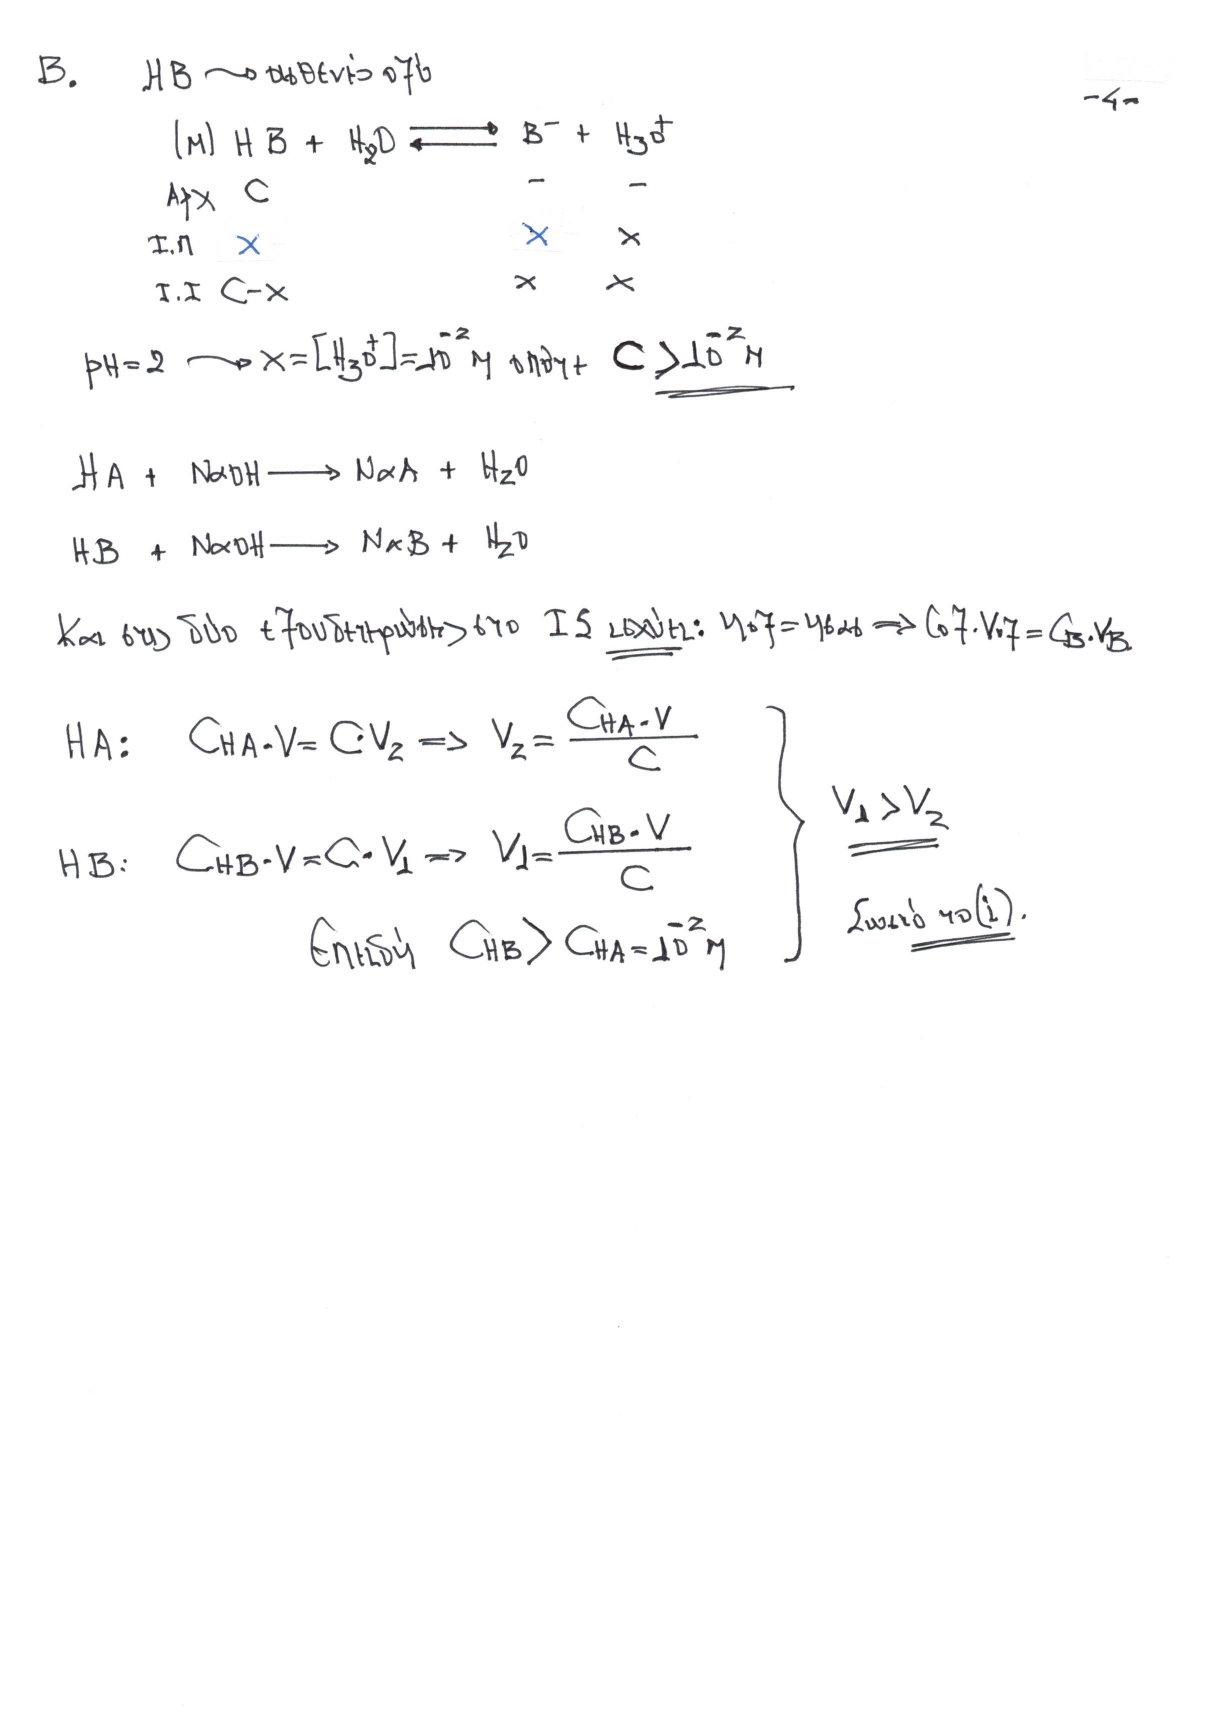 -4-
B. HB ⤳ ασθενές οξύ
(M) HB + H₂O ⇌ B⁻ + H₃O⁺
Αρχ C - -
Ι.Π x x x
Ι.Ι C-x x x
pH=2 ⤳ x=[H₃O⁺]=10⁻² M οπότε C>10⁻² M
HA + NaOH ⟶ NaA + H₂O
HB + NaOH ⟶ NaB + H₂O
Και στις δύο εξουδετερώσεις στο ΙΣ ισχύει: nοξ=nβασ ⇒ Cοξ·Vοξ=CB·VB
HA: CHA·V=C·V₂ ⇒ V₂= CHA·V / C
HB: CHB·V=C·V₁ ⇒ V₁= CHB·V / C
V₁>V₂
Επειδή CHB>CHA=10⁻² M
Σωστό το (i).